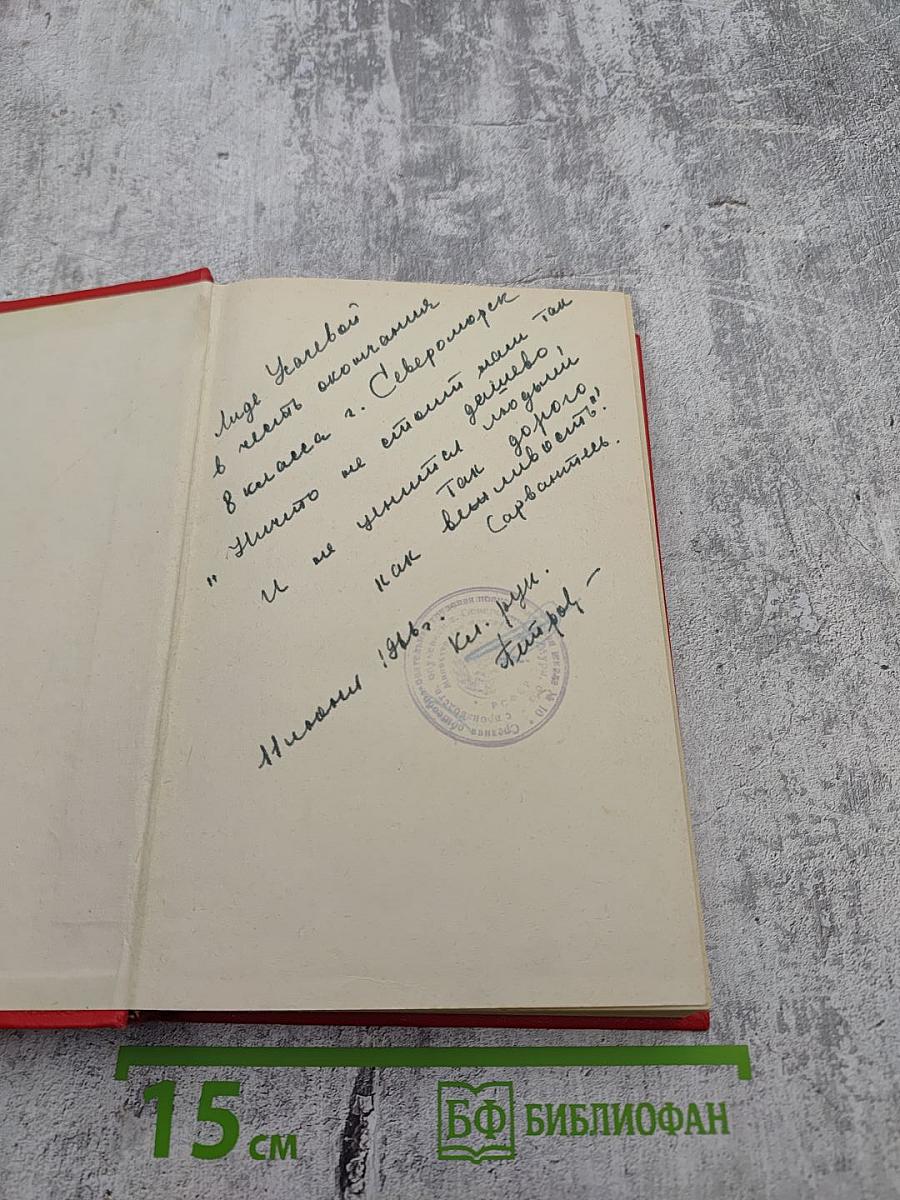 Лиде Усачевой
в честь окончания
8 класса г. Североморск
"Ничто не стоит нам так
дёшево,
И не ценится людьми
так дорого,
как вежливость".
Сарвантес.
Кл. рук.
11 июня 1966 г.
Средняя общеобразовательная
школа № 10
с производств. обучением
РСФСР
15 см
БФ БИБЛИОФАН